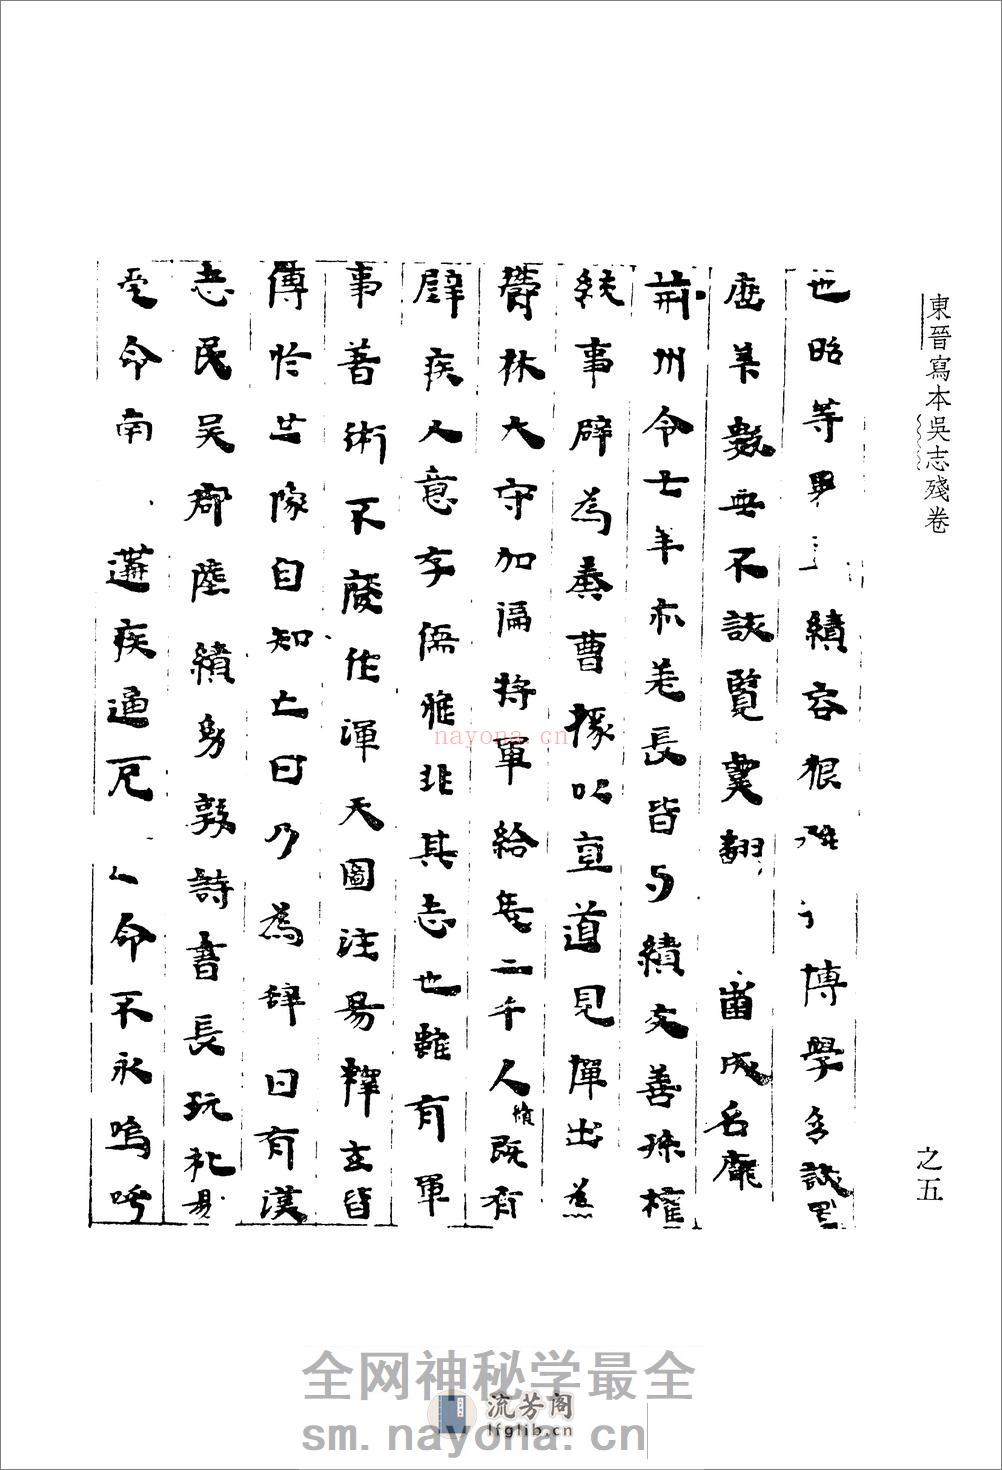 東晉寫本吳志殘卷
之五
也昭等異之績容狠雄博學多識星
歷筭數無不該覽虞翻舊咸名龐
荊州令士年亦差長皆与績友善孫權
統事辟為奏曹掾以直道見憚出為
鬱林太守加偏將軍給兵二千人績既有
躄疾又意存儒雅非其志也雖有軍
事著術不廢作渾天圖注易釋玄皆
傳於世豫自知亡日乃為辞曰有漢
志民吳郡陸績幼敦詩書長玩礼易
受命南遘疾逼厄命不永嗚呼
nayona.cn
全网神秘学最全
流芳阁
lfglib.cn
sm.nayona.cn